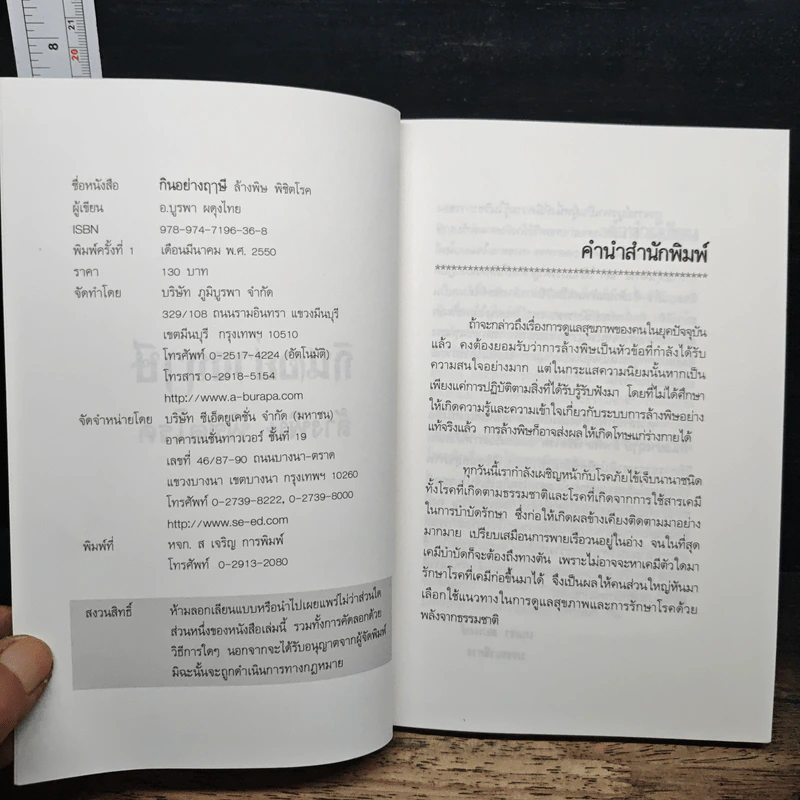 8
20
21
ชื่อหนังสือ กินอย่างฤๅษี ล้างพิษ พิชิตโรค
ผู้เขียน อ.บูรพา ผดุงไทย
ISBN 978-974-7196-36-8
พิมพ์ครั้งที่ 1 เดือนมีนาคม พ.ศ. 2550
ราคา 130 บาท
จัดทำโดย บริษัท ภูมิบูรพา จำกัด
329/108 ถนนรามอินทรา แขวงมีนบุรี
เขตมีนบุรี กรุงเทพฯ 10510
โทรศัพท์ 0-2517-4224 (อัตโนมัติ)
โทรสาร 0-2918-5154
http://www.a-burapa.com
จัดจำหน่ายโดย บริษัท ซีเอ็ดยูเคชั่น จำกัด (มหาชน)
อาคารเนชั่นทาวเวอร์ ชั้นที่ 19
เลขที่ 46/87-90 ถนนบางนา-ตราด
แขวงบางนา เขตบางนา กรุงเทพฯ 10260
โทรศัพท์ 0-2739-8222, 0-2739-8000
http://www.se-ed.com
พิมพ์ที่ หจก. ส เจริญ การพิมพ์
โทรศัพท์ 0-2913-2080
สงวนสิทธิ์ ห้ามลอกเลียนแบบหรือนำไปเผยแพร่ไม่ว่าส่วนใด
ส่วนหนึ่งของหนังสือเล่มนี้ รวมทั้งการคัดลอกด้วย
วิธีการใดๆ นอกจากจะได้รับอนุญาตจากผู้จัดพิมพ์
มิฉะนั้นจะถูกดำเนินการทางกฎหมาย
คำนำสำนักพิมพ์
ถ้าจะกล่าวถึงเรื่องการดูแลสุขภาพของคนในยุคปัจจุบัน
แล้ว คงต้องยอมรับว่าการล้างพิษเป็นหัวข้อที่กำลังได้รับ
ความสนใจอย่างมาก แต่ในกระแสความนิยมนั้นหากเป็น
เพียงแค่การปฏิบัติตามสิ่งที่ได้รับรู้รับฟังมา โดยที่ไม่ได้ศึกษา
ให้เกิดความรู้และความเข้าใจเกี่ยวกับระบบการล้างพิษอย่าง
แท้จริงแล้ว การล้างพิษก็อาจส่งผลให้เกิดโทษแก่ร่างกายได้
ทุกวันนี้เรากำลังเผชิญหน้ากับโรคภัยไข้เจ็บนานาชนิด
ทั้งโรคที่เกิดตามธรรมชาติและโรคที่เกิดจากการใช้สารเคมี
ในการบำบัดรักษา ซึ่งก่อให้เกิดผลข้างเคียงติดตามมาอย่าง
มากมาย เปรียบเสมือนการพายเรือวนอยู่ในอ่าง จนในที่สุด
เคมีบำบัดก็จะต้องถึงทางตัน เพราะไม่อาจจะหาเคมีตัวใดมา
รักษาโรคที่เคมีก่อขึ้นมาได้ จึงเป็นผลให้คนส่วนใหญ่หันมา
เลือกใช้แนวทางในการดูแลสุขภาพและการรักษาโรคด้วย
พลังจากธรรมชาติ